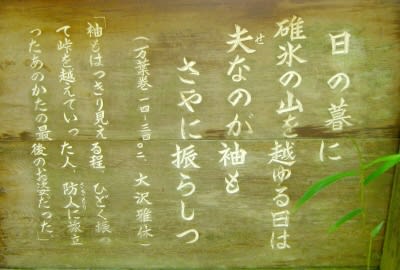 日の暮に
碓氷の山を越ゆる日は
夫なのが袖も
せ
さやに振らしつ
(万葉巻一四-三四〇二、大沢雅休)
「袖もはっきり見える程 ひどく振っ
て峠を越えていった人、防人に旅立
さきもり
ったあのかたの最後のお姿だった」